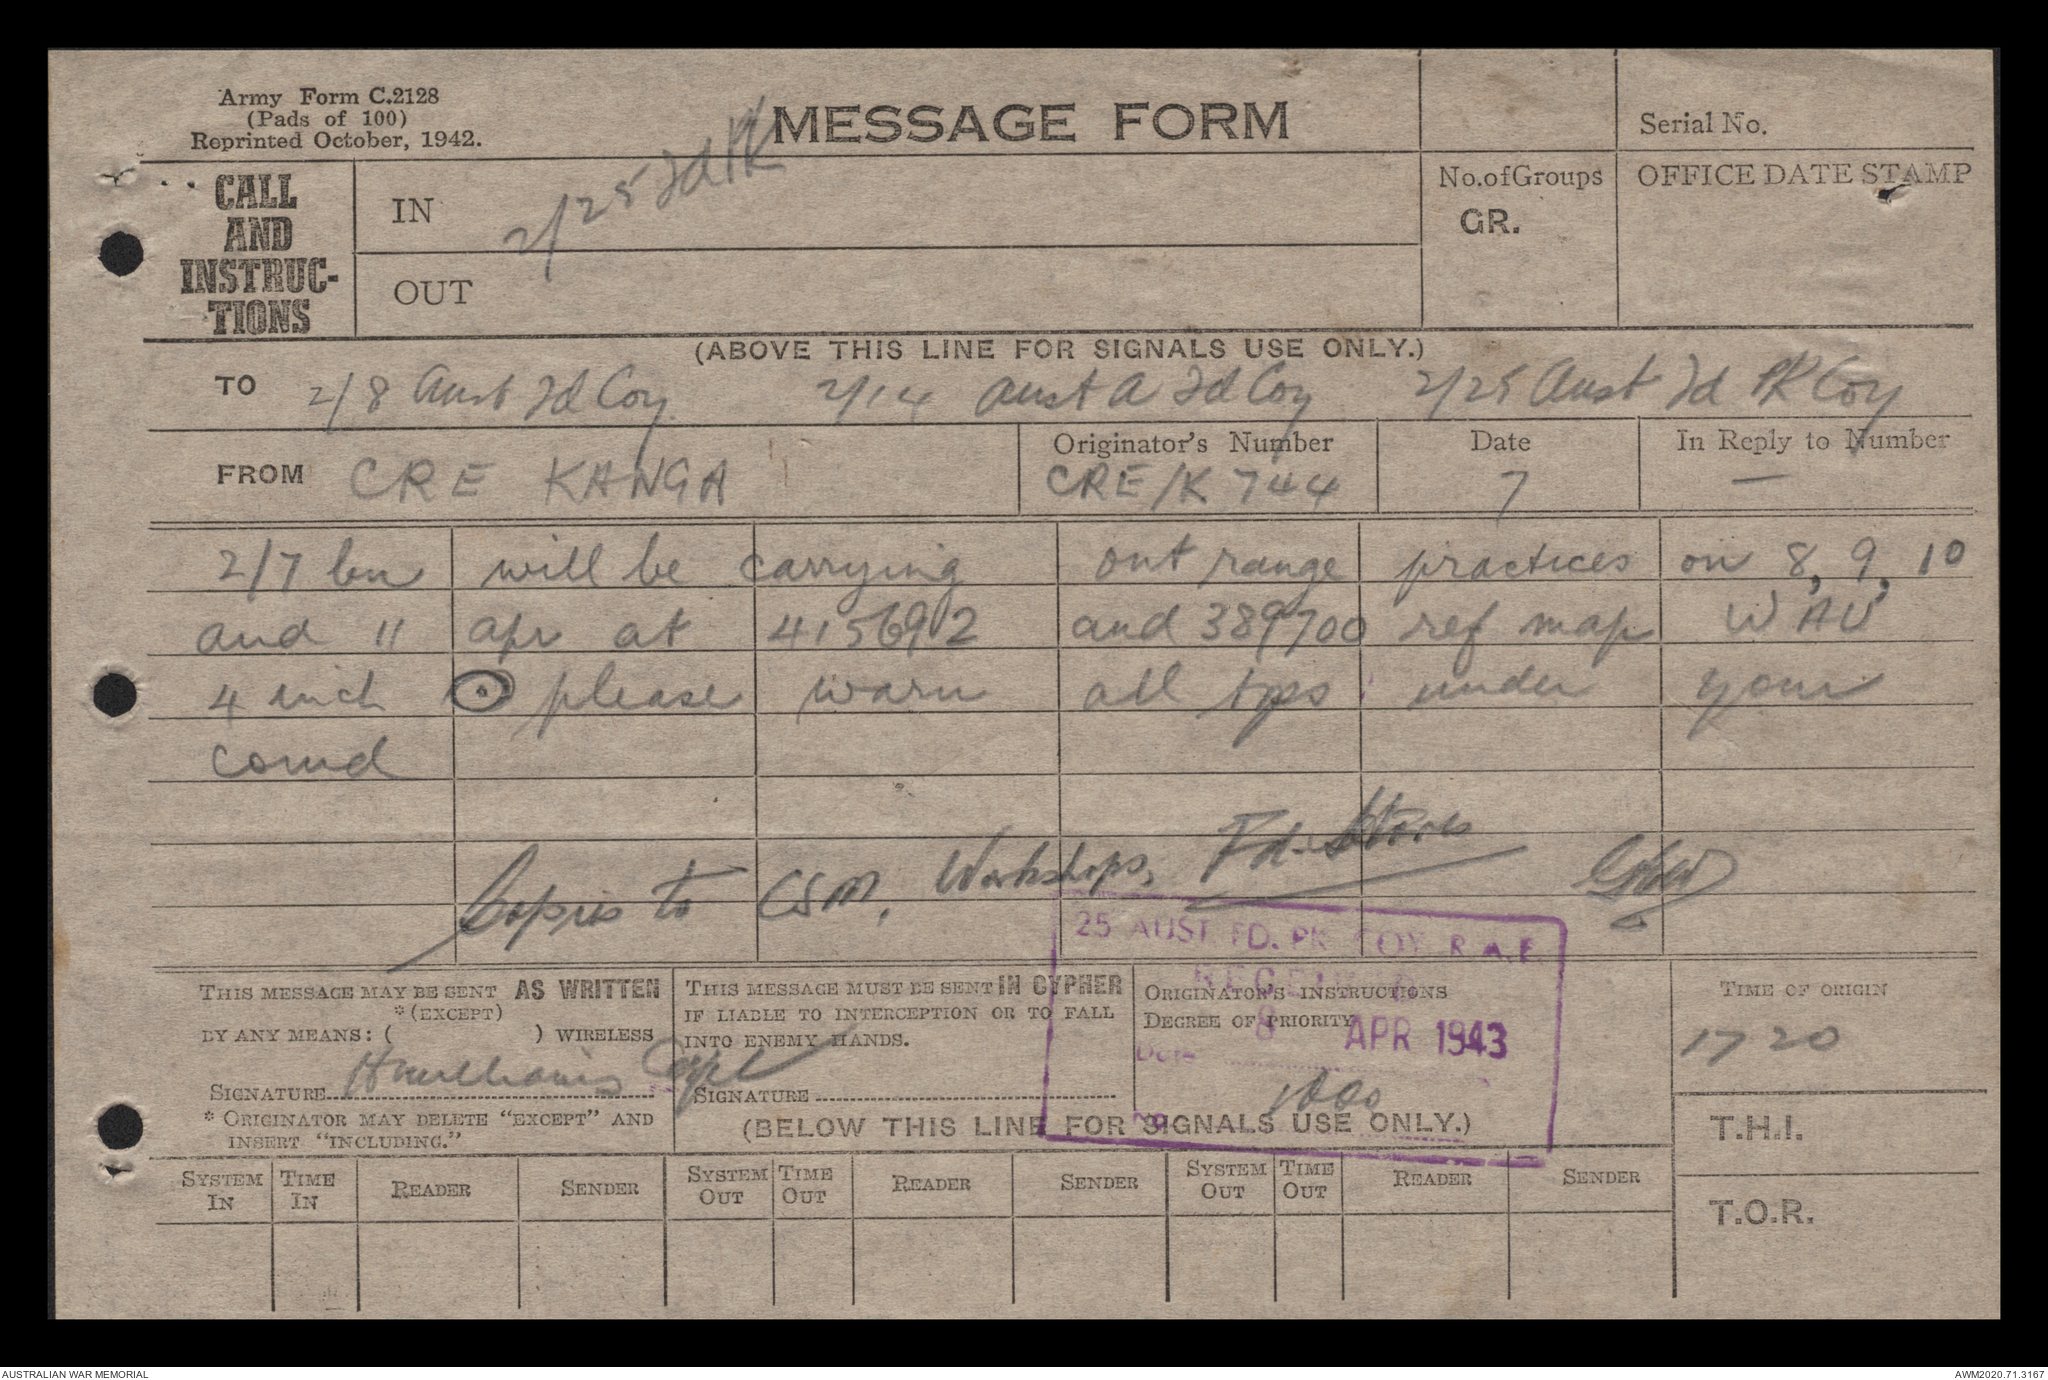 Army Form C.2128
(Pads of 100)
Reprinted October, 1942.
MESSAGE FORM
Serial No.
CALL AND INSTRUC-TIONS
IN
2/25 Fd PK
OUT
No. of Groups
GR.
OFFICE DATE STAMP
(ABOVE THIS LINE FOR SIGNALS USE ONLY.)
TO 2/8 Aust Fd Coy 2/14 Aust A Fd Coy 2/25 Aust Fd PK Coy
FROM CRE KANGA
Originator's Number
CRE/K 744
Date
7
In Reply to Number
—
2/7 bn will be carrying out range practices on 8, 9, 10
and 11 apr at 415692 and 389700 ref map WAU
4 inch ⊙ please warn all tps under your
comd
Copies to CSM, Workshops, Fd. Stores
25 AUST. FD. PK COY R.A.E.
RECEIVED
8 APR 1943
Date
1000
THIS MESSAGE MAY BE SENT AS WRITTEN
*(EXCEPT)
BY ANY MEANS: ( ) WIRELESS
SIGNATURE HWilliams Capt
* ORIGINATOR MAY DELETE "EXCEPT" AND
INSERT "INCLUDING."
THIS MESSAGE MUST BE SENT IN CYPHER
IF LIABLE TO INTERCEPTION OR TO FALL
INTO ENEMY HANDS.
SIGNATURE
ORIGINATOR'S INSTRUCTIONS
DEGREE OF PRIORITY
TIME OF ORIGIN
1720
(BELOW THIS LINE FOR SIGNALS USE ONLY.)
T.H.I.
T.O.R.
SYSTEM IN TIME IN READER SENDER SYSTEM OUT TIME OUT READER SENDER SYSTEM OUT TIME OUT READER SENDER
AUSTRALIAN WAR MEMORIAL
AWM2020.71.3167